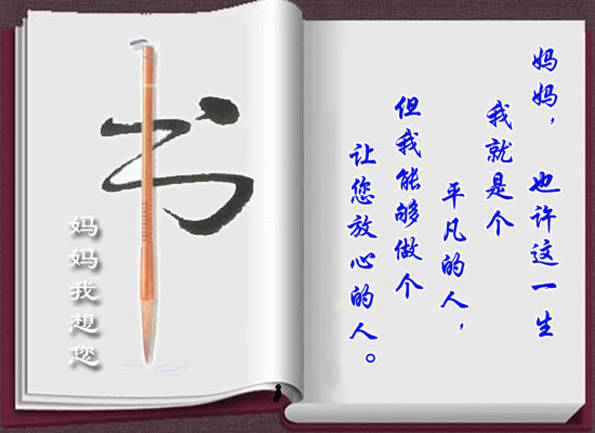 书
妈妈我想您
妈妈，也许这一生
我就是个
平凡的人，
但我能够做个
让您放心的人。